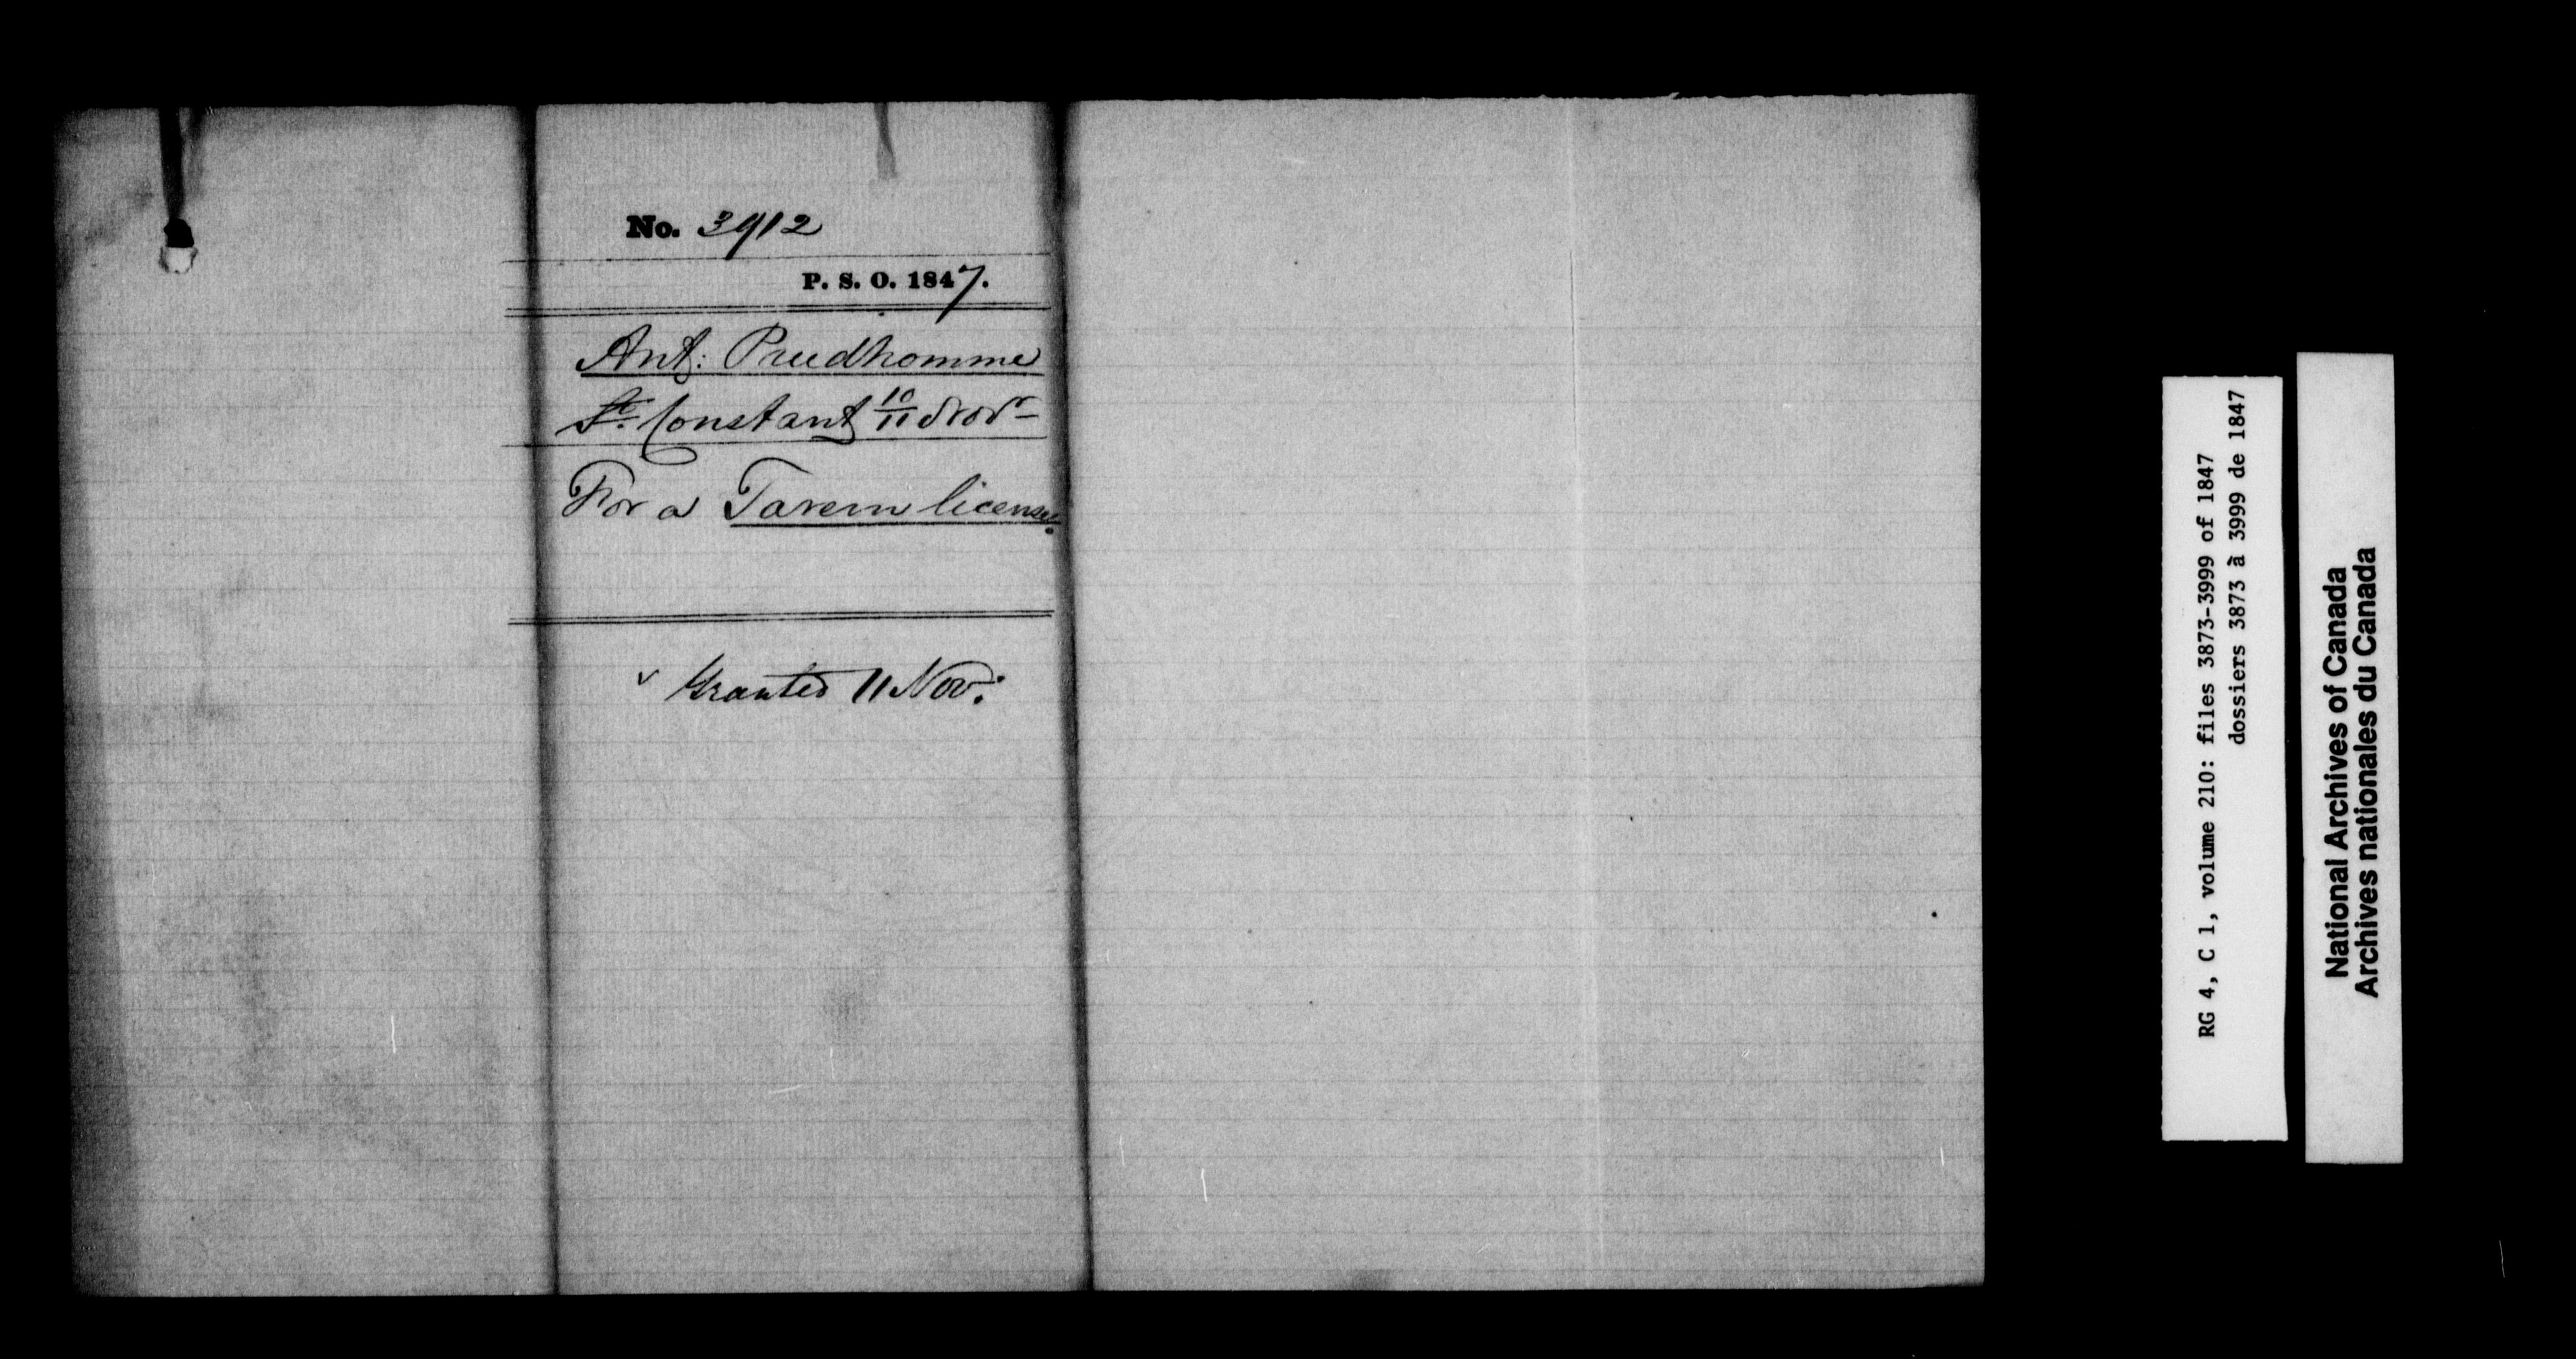 No. 3912
P. S. O. 1847.
Ant: Prudhomme
St. Constant 10/11 Novr
For a Tavern license.
v Granted 11 Nov:
RG 4, C 1, volume 210: files 3873-3999 of 1847
dossiers 3873 à 3999 de 1847
National Archives of Canada
Archives nationales du Canada